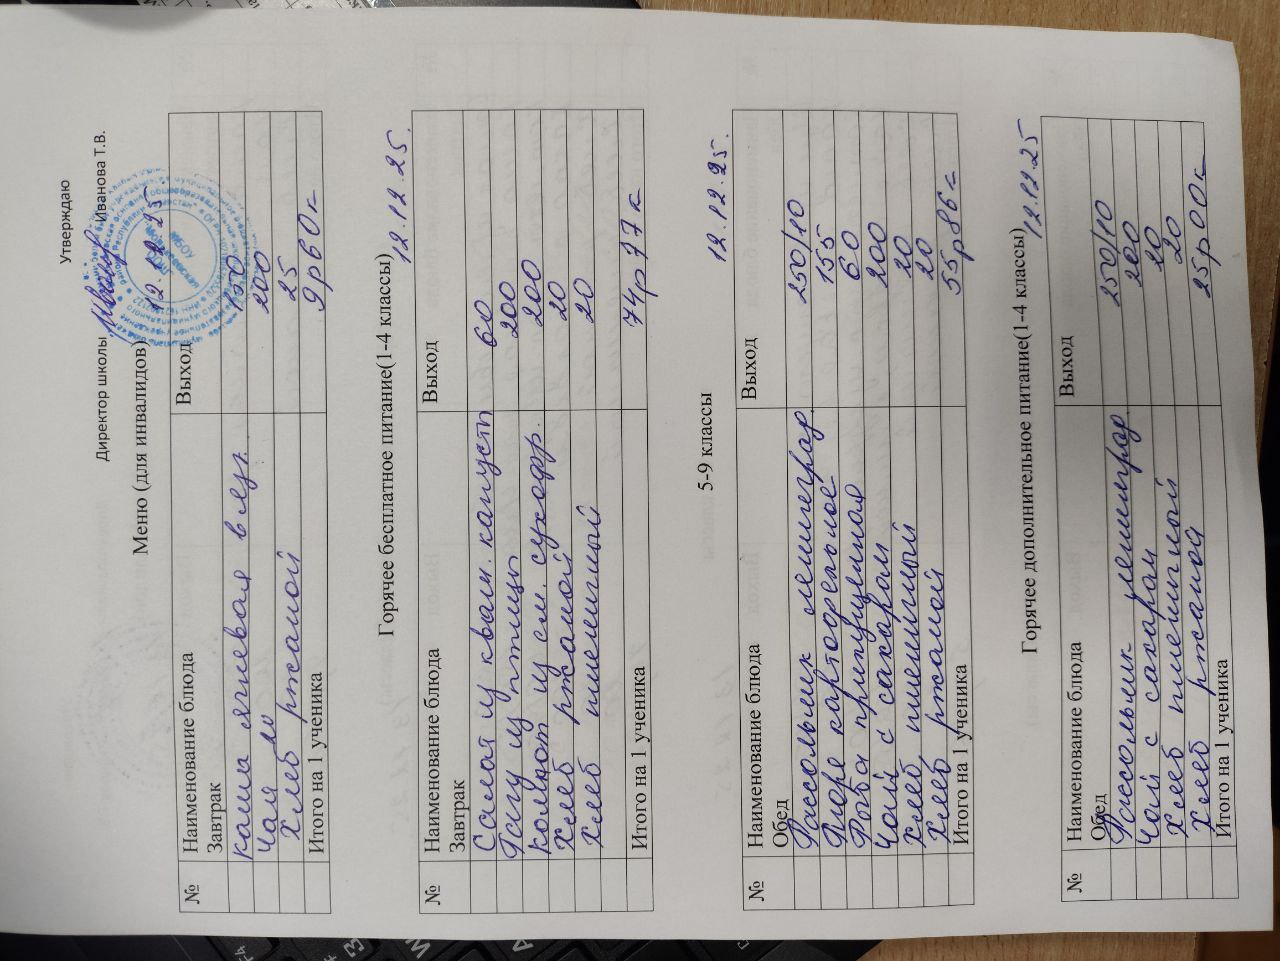 Утверждаю
Директор школы Иванова Т.В.
12.12.25
Меню (для инвалидов)
№ Наименование блюда Выход
Завтрак
каша ячневая вязк. 150
Чай 200
Хлеб ржаной 25
Итого на 1 ученика 9р60к
Горячее бесплатное питание(1-4 классы)
12.12.25.
№ Наименование блюда Выход
Завтрак
Салат из кваш. капусты 60
Рагу из птицы 200
компот из см. сухофр. 200
Хлеб ржаной 20
Хлеб пшеничный 20
Итого на 1 ученика 74р77к
5-9 классы 12.12.25.
№ Наименование блюда Выход
Обед
Рассольник ленинград. 250/10
Пюре картофельное 155
Рыба припущенная 60
Чай с сахаром 200
Хлеб пшеничный 20
Хлеб ржаной 20
Итого на 1 ученика 55р86к
Горячее дополнительное питание(1-4 классы)
12.12.25
№ Наименование блюда Выход
Обед
Рассольник ленинград 250/10
Чай с сахаром 200
Хлеб пшеничный 20
Хлеб ржаной 20
Итого на 1 ученика 25р00к